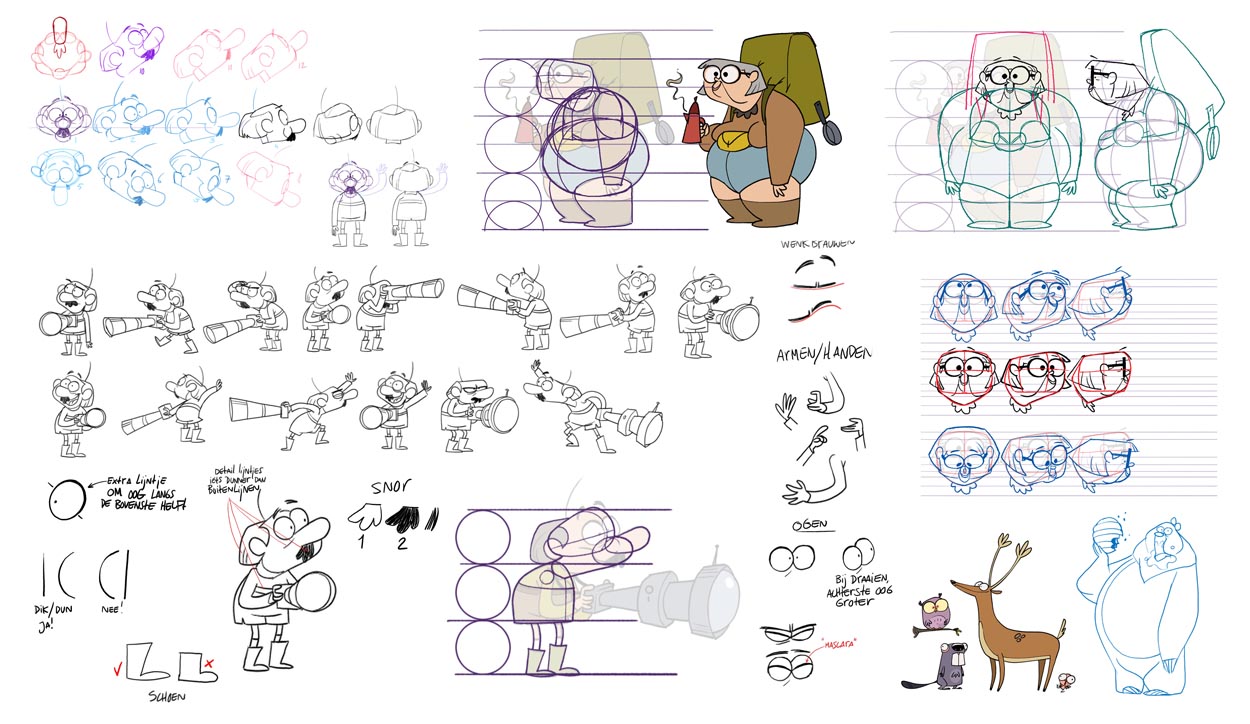 WENKBRAUWEN
ARMEN/HANDEN
EXTRA LIJNTJE
OM OOG LANGS
DE BOVENSTE HELFT!
DETAIL LIJNTJES
IETS DUNNER DAN
BUITENLIJNEN
SNOR
1 2
DIK/DUN
JA!
NEE!
SCHOEN
OGEN
Bij DRAAIEN,
ACHTERSTE OOG
GROTER
"MASCARA"